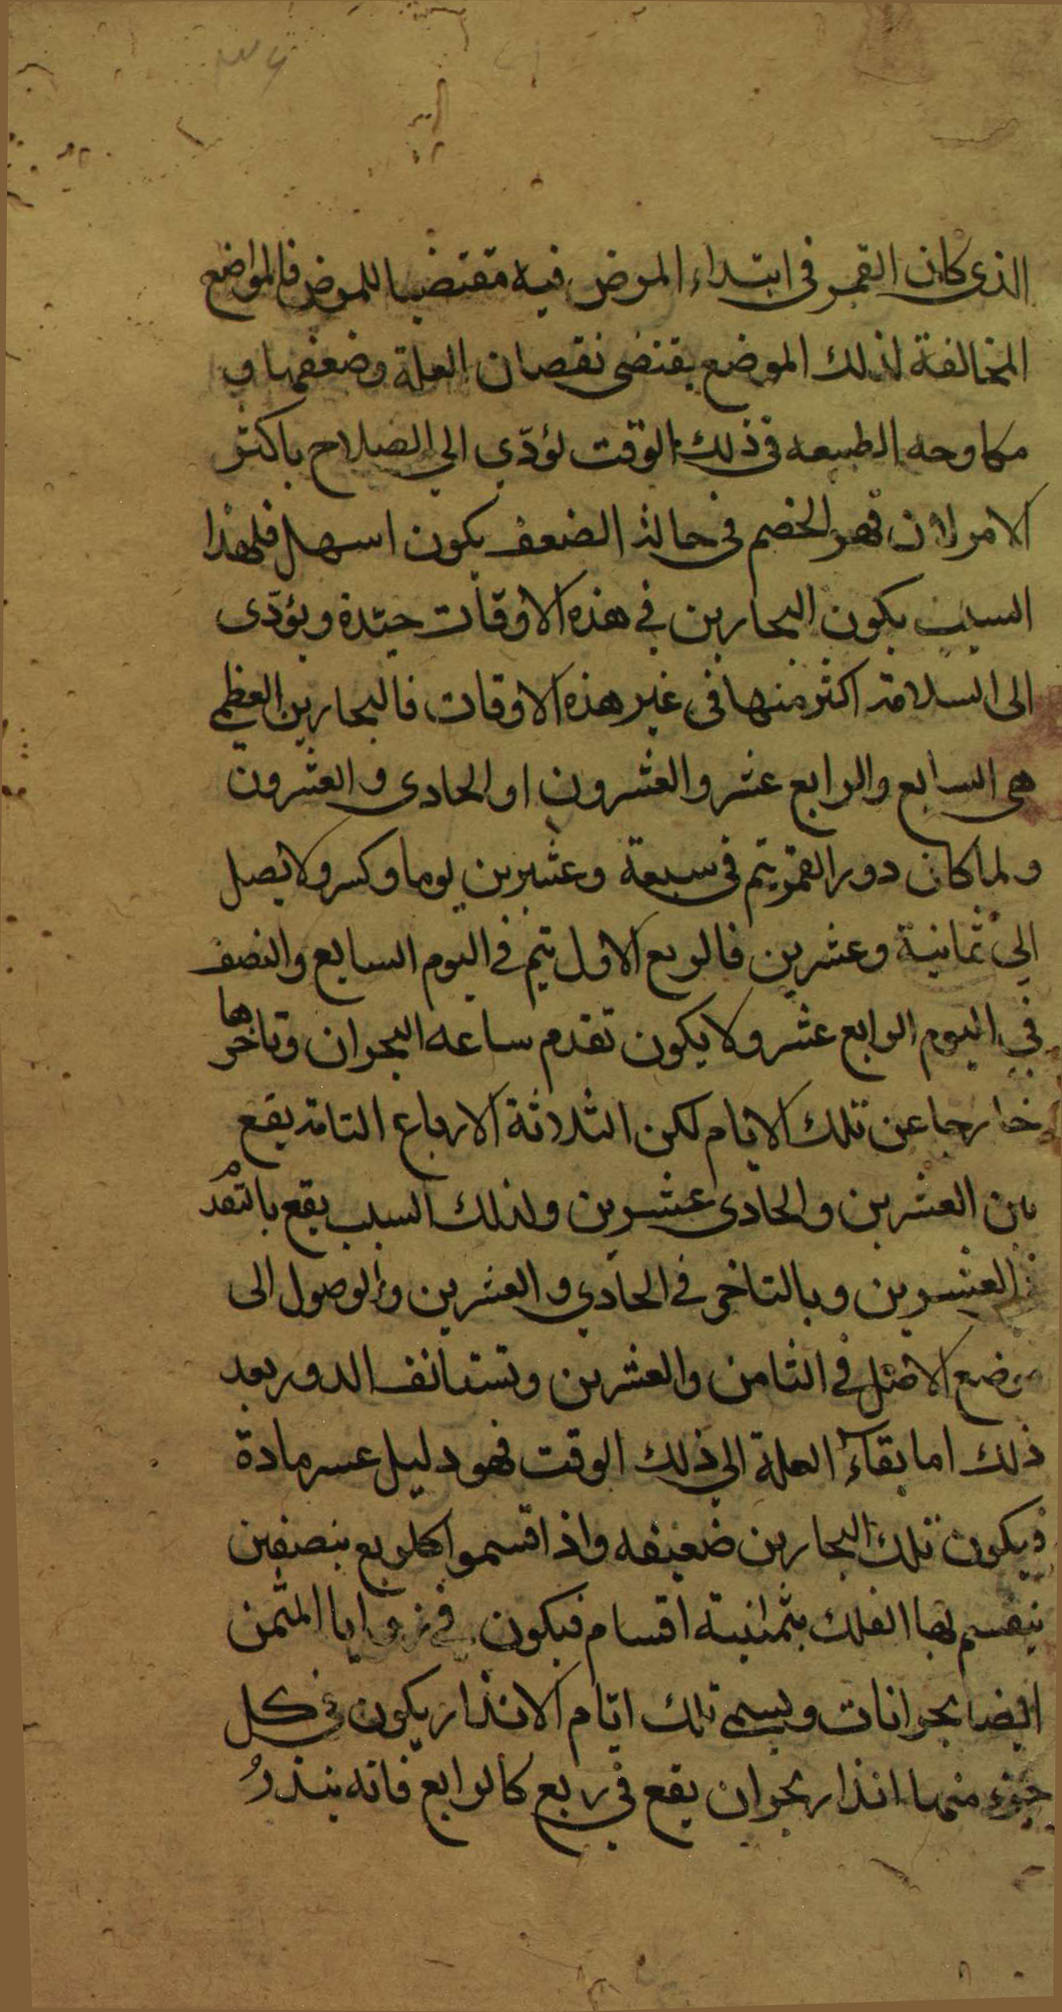 الذى كان القمر فى ابتداء المرض فيه مقتضيا للمرض فالمواضع
المخالفة لذلك الموضع يقتضى نقصان العلة وضعفها و
مكاوحه الطبيعه فى ذلك الوقت يؤدّى الى الصلاح باكثر
الامر لان قهر الخصم فى حالة الضعف يكون اسهل فلهذا
السبب يكون البحارين في هذه الاوقات جيّدة ويؤدّى
الى السلامة اكثر منها فى غير هذه الاوقات فالبحارين العظمى
هى السابع والرابع عشر والعشرون او الحادى والعشرون
ولما كان دور القمر يتم فى سبعة وعشرين يوما وكسر ولا يصل
الى ثمانية وعشرين فالربع الاول يتم فى اليوم السابع والنصف
في اليوم الرابع عشر ولا يكون تقدم ساعه البحران وتاخرها
خارجا عن تلك الايام لكن الثلاثة الارباع التامة يقع
بين العشرين والحادى عشرين ولذلك السبب يقع بالتقدم
العشرين وبالتاخر فى الحادي والعشرين والوصول الى
موضع الاصل فى الثامن والعشرين وتستانف الدور بعد
ذلك اما بقاء العلة الى ذلك الوقت فهو دليل عسر مادة
ويكون تلك البحارين ضعيفه واذا قسموا كل ربع بنصفين
ينقسم بها الفلك بثمانية اقسام فيكون فى زوايا المثمن
ايضا بحرانات ويسمى تلك ايّام الانذار يكون فى كل
جزء منها انذار بحران يقع فى ربع كالرابع فانه ينذر